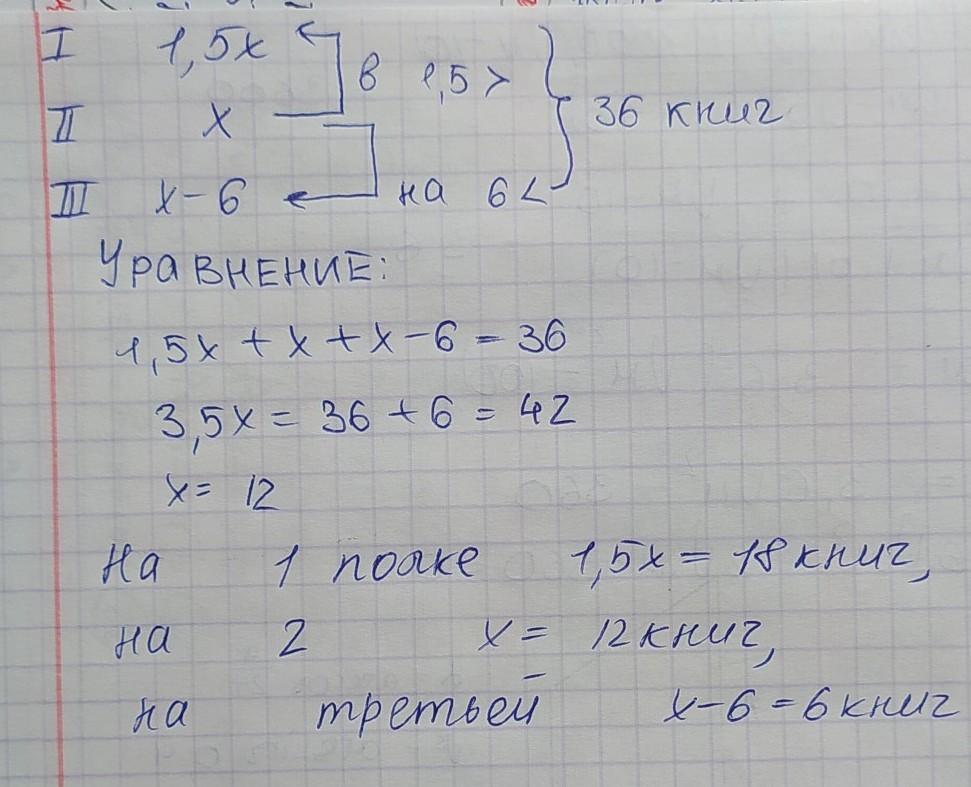 I 1,5x в 1,5 >
II x 36 книг
III x-6 на 6 <
Уравнение:
1,5x + x + x - 6 = 36
3,5x = 36 + 6 = 42
x = 12
На 1 полке 1,5x = 18 книг,
на 2 x = 12 книг,
на третьей x-6 = 6 книг